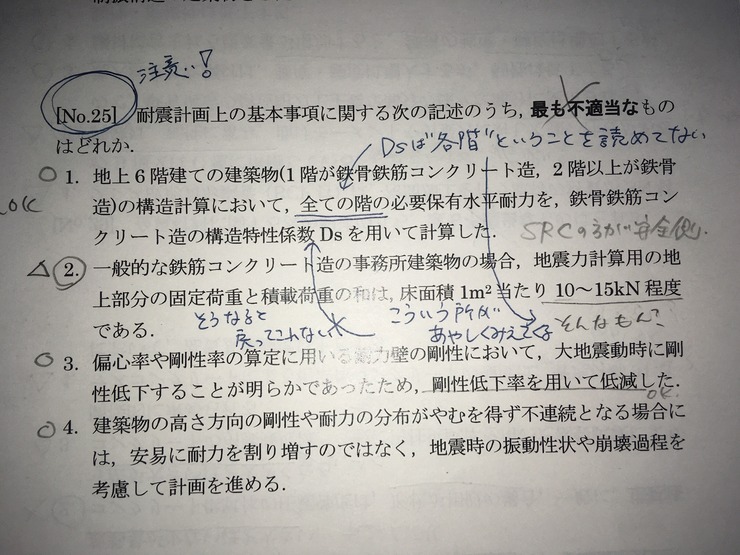 注意!
[No.25] 耐震計画上の基本事項に関する次の記述のうち, 最も不適当なもの
はどれか.
Dsは"各階"ということを読めてない
1. 地上6階建ての建築物(1階が鉄骨鉄筋コンクリート造, 2階以上が鉄骨
OK
造)の構造計算において, 全ての階の必要保有水平耐力を, 鉄骨鉄筋コン
クリート造の構造特性係数Dsを用いて計算した.
SRCの方が安全側.
2. 一般的な鉄筋コンクリート造の事務所建築物の場合, 地震力計算用の地
上部分の固定荷重と積載荷重の和は, 床面積1m²当たり10～15kN程度
である.
そうなると
戻ってこれない
こういう所が
あやしくみえてくる
そんなもん?
3. 偏心率や剛性率の算定に用いる耐力壁の剛性において, 大地震動時に剛
性低下することが明らかであったため, 剛性低下率を用いて低減した.
OK.
4. 建築物の高さ方向の剛性や耐力の分布がやむを得ず不連続となる場合に
は, 安易に耐力を割り増すのではなく, 地震時の振動性状や崩壊過程を
考慮して計画を進める.